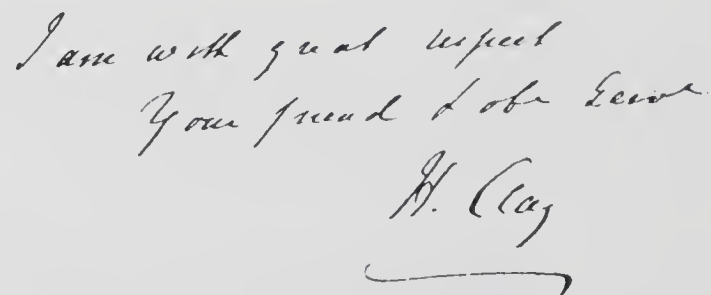 I am with great respect
Your friend & obt Servt
H. Clay